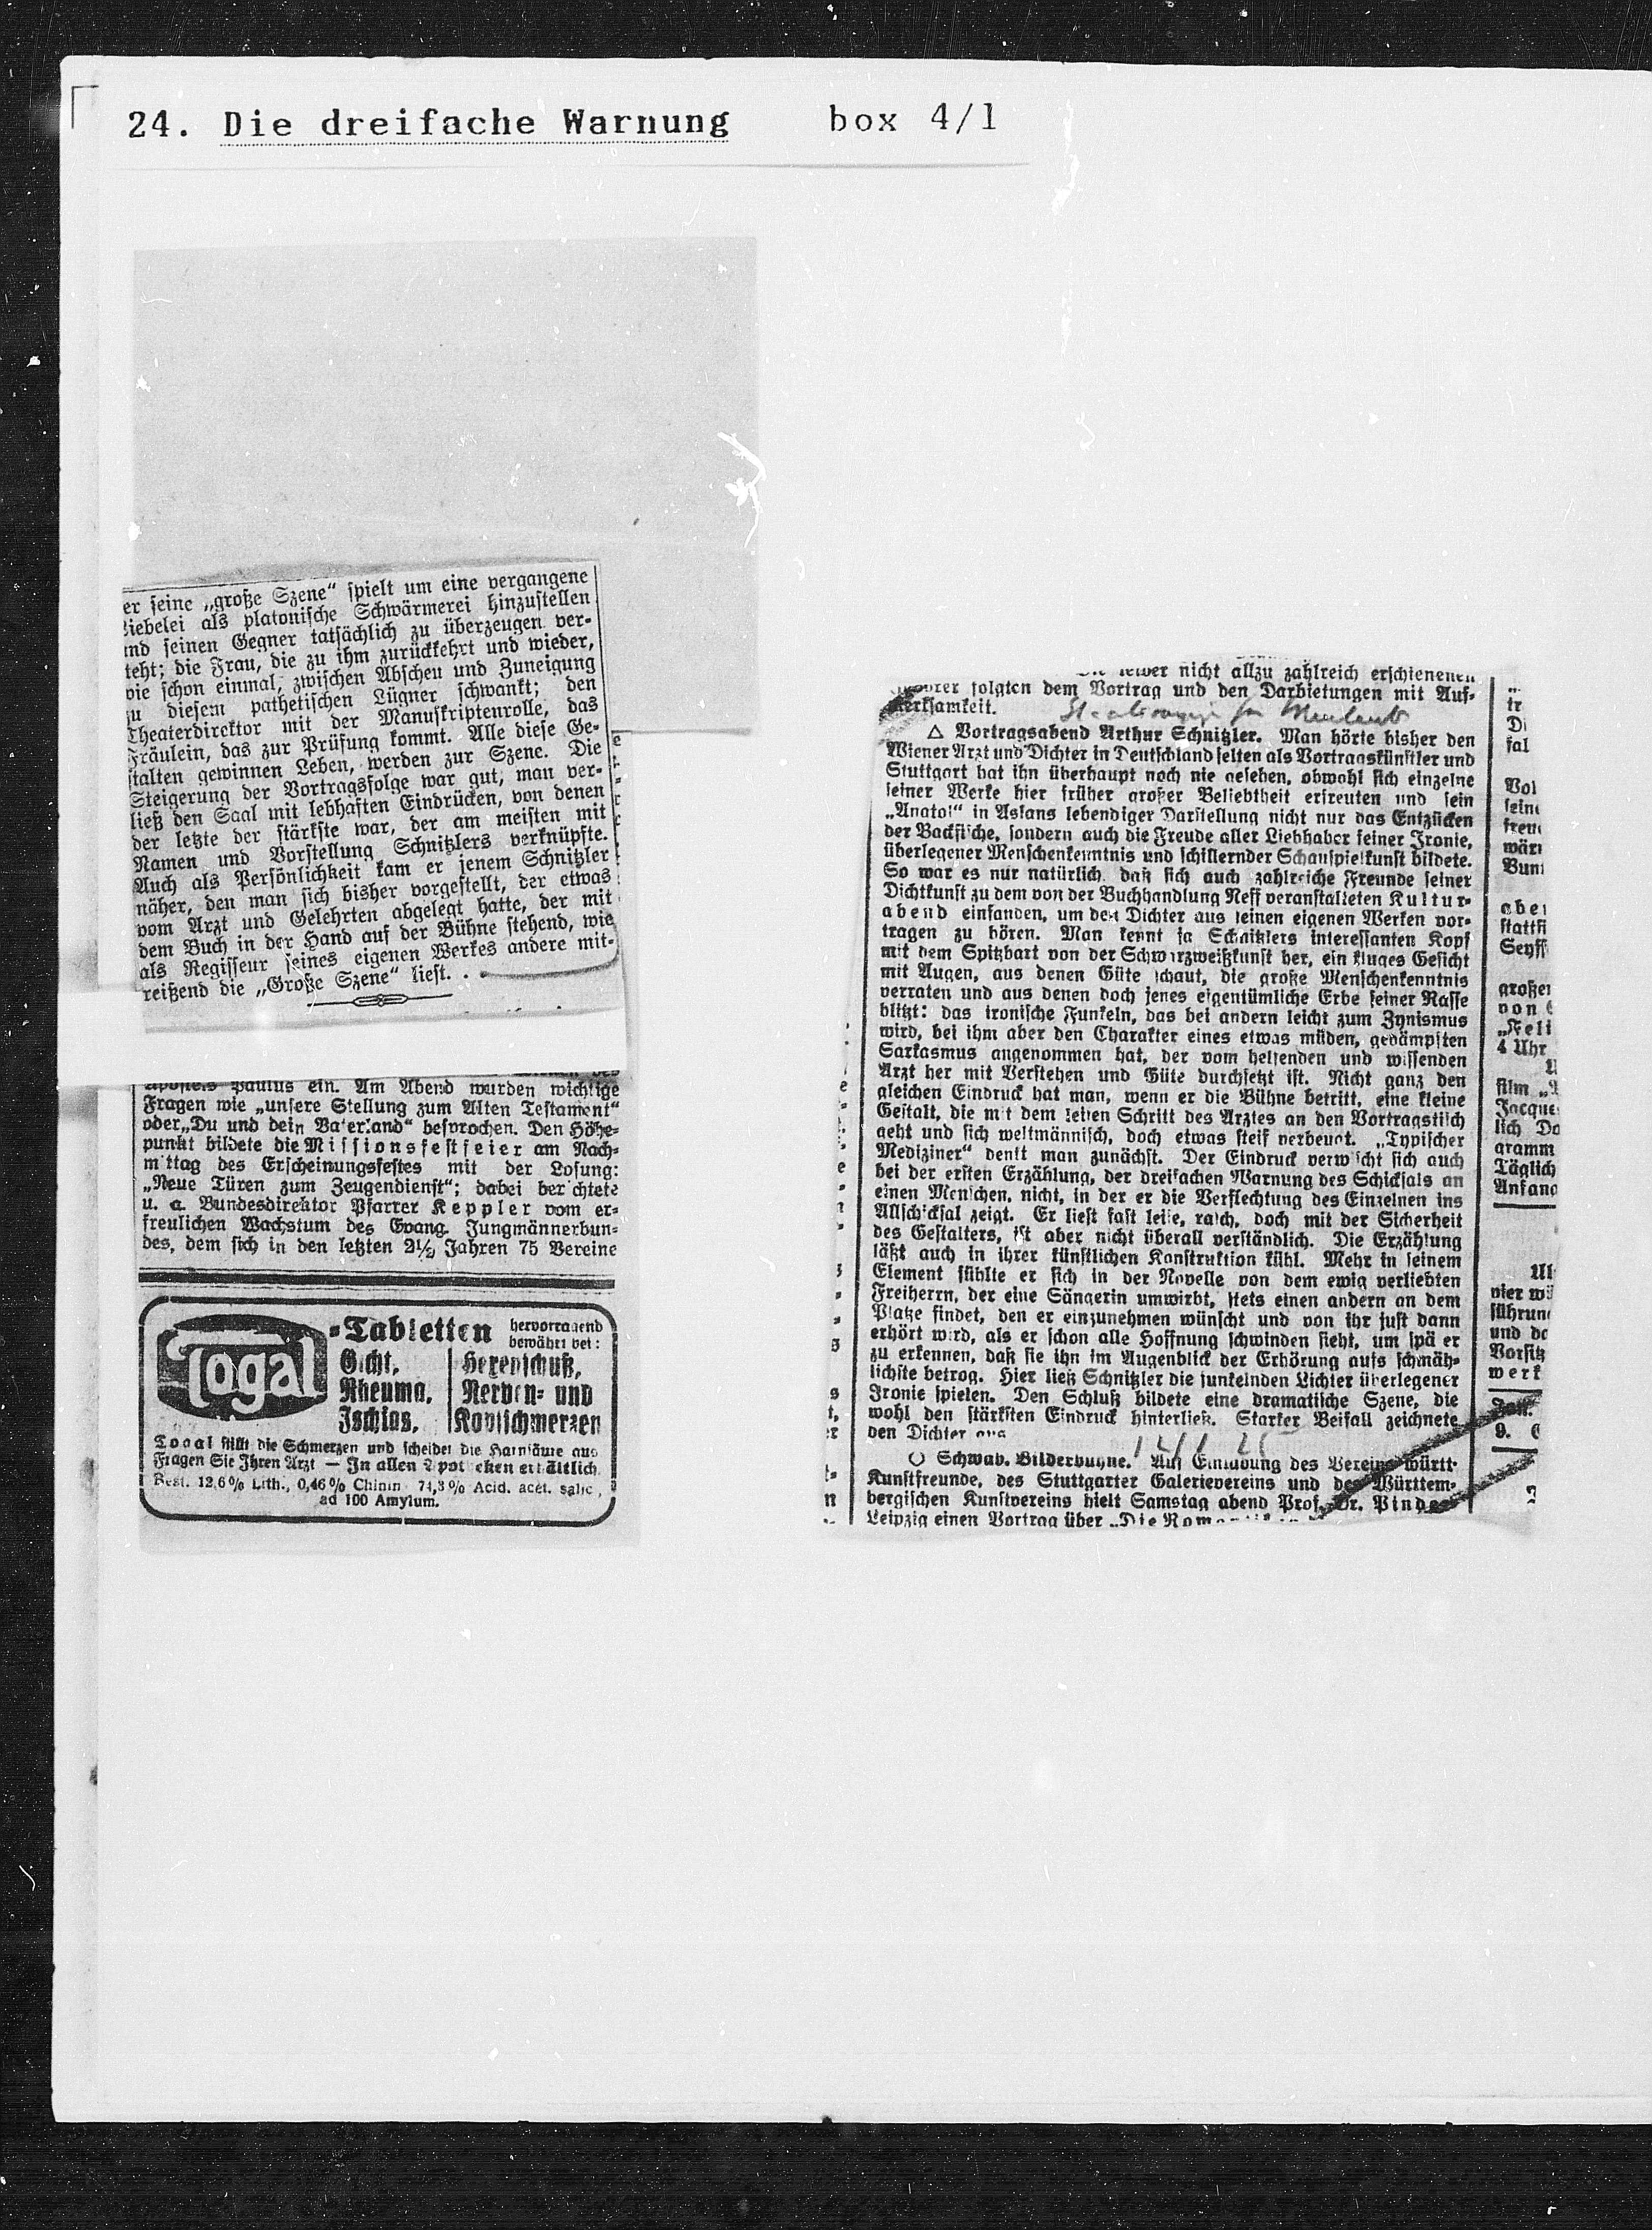 24. Die dreifache Warnung box 4/1
er seine „große Szene“ spielt um eine vergangene
Liebelei als platonische Schwärmerei hinzustellen
und seinen Gegner tatsächlich zu überzeugen ver-
teht; die Frau, die zu ihm zurückkehrt und wieder,
wie schon einmal, zwischen Abscheu und Zuneigung
zu diesem pathetischen Lügner schwankt; den
Theaterdirektor mit der Manuskriptenrolle, das
Fräulein, das zur Prüfung kommt. Alle diese Ge-
stalten gewinnen Leben, werden zur Szene. Die
Steigerung der Vortragsfolge war gut; man ver-
ließ den Saal mit lebhaften Eindrücken, von denen
der letzte der stärkste war, der am meisten mit
Namen und Vorstellung Schnitzlers verknüpfte.
Auch als Persönlichkeit kam er jenem Schnitzler
näher, den man sich bisher vorgestellt, der etwas
vom Arzt und Gelehrten abgelegt hatte, der mit
dem Buch in der Hand auf der Bühne stehend, wie
als Regisseur seines eigenen Werkes andere mit-
reißend die „Große Szene“ liest. .
Apostels Paulus ein. Am Abend wurden wichtige
Fragen wie „unsere Stellung zum Alten Testament“
oder „Du und dein Vaterland“ besprochen. Den Höhe-
punkt bildete die Missionsfestfeier am Nach-
mittag des Erscheinungsfestes mit der Losung:
„Neue Türen zum Zeugendienst“; dabei berichtete
u. a. Bundesdirektor Pfarrer Keppler vom er-
freulichen Wachstum des Evang. Jungmännerbun-
des, dem sich in den letzten 2½ Jahren 75 Vereine
Togal-Tabletten hervorragend
bewährt bei:
Gicht, Hexenschuß,
Rheuma, Nerven- und
Ischias, Kopfschmerzen
Togal stillt die Schmerzen und scheidet die Harnsäure aus
Fragen Sie Ihren Arzt — In allen Apotheken erhältlich
Best. 12,6% Lith., 0,46% Chinin 74,3% Acid. acet. salic.,
ad 100 Amylum.
leider nicht allzu zahlreich erschienenen
folgten dem Vortrag und den Darbietungen mit Auf-
merksamkeit.
△ Vortragsabend Arthur Schnitzler. Man hörte bisher den
Wiener Arzt und Dichter in Deutschland selten als Vortragskünstler und
Stuttgart hat ihn überhaupt noch nie gesehen, obwohl sich einzelne
seiner Werke hier früher großer Beliebtheit erfreuten und sein
„Anatol“ in Aslans lebendiger Darstellung nicht nur das Entzücken
der Backfische, sondern auch die Freude aller Liebhaber feiner Ironie,
überlegener Menschenkenntnis und schillernder Schauspielkunst bildete.
So war es nur natürlich, daß sich auch zahlreiche Freunde seiner
Dichtkunst zu dem von der Buchhandlung Neff veranstalteten Kultur-
abend einfanden, um den Dichter aus seinen eigenen Werken vor-
tragen zu hören. Man kennt ja Schnitzlers interessanten Kopf
mit dem Spitzbart von der Schwarzweißkunst her, ein kluges Gesicht
mit Augen, aus denen Güte schaut, die große Menschenkenntnis
verraten und aus denen doch jenes eigentümliche Erbe seiner Rasse
blitzt: das ironische Funkeln, das bei andern leicht zum Zynismus
wird, bei ihm aber den Charakter eines etwas müden, gedämpften
Sarkasmus angenommen hat, der vom helfenden und wissenden
Arzt her mit Verstehen und Güte durchsetzt ist. Nicht ganz den
gleichen Eindruck hat man, wenn er die Bühne betritt, eine kleine
Gestalt, die mit dem leisen Schritt des Arztes an den Vortragstisch
geht und sich weltmännisch, doch etwas steif verbeugt. „Typischer
Mediziner“ denkt man zunächst. Der Eindruck verwischt sich auch
bei der ersten Erzählung, der dreifachen Warnung des Schicksals an
einen Menschen, nicht, in der er die Verflechtung des Einzelnen ins
Allschicksal zeigt. Er liest fast leise, rasch, doch mit der Sicherheit
des Gestalters, ist aber nicht überall verständlich. Die Erzählung
läßt auch in ihrer künstlichen Konstruktion kühl. Mehr in seinem
Element fühlte er sich in der Novelle von dem ewig verliebten
Freiherrn, der eine Sängerin umwirbt, stets einen andern an dem
Platze findet, den er einzunehmen wünscht und von ihr just dann
erhört wird, als er schon alle Hoffnung schwinden sieht, um später
zu erkennen, daß sie ihn im Augenblick der Erhörung aufs schmäh-
lichste betrog. Hier ließ Schnitzler die funkelnden Lichter überlegener
Ironie spielen. Den Schluß bildete eine dramatische Szene, die
wohl den stärksten Eindruck hinterließ. Starker Beifall zeichnete
den Dichter aus
○ Schwäb. Bilderbühne. Auf Einladung des Vereins württ.
Kunstfreunde, des Stuttgarter Galerievereins und des Württem-
bergischen Kunstvereins hielt Samstag abend Prof. Dr. Pinder
Leipzig einen Vortrag über „Die
tr
Di
sal
Vol
seine
freu
wäri
Bun
abe
stattfi
Seyff
großer
von
„Feli
4 Uhr
film
Jacque
lich Do
gramm
Täglich
Anfang
vier wü
führung
und de
Vorsitz
werk
9.